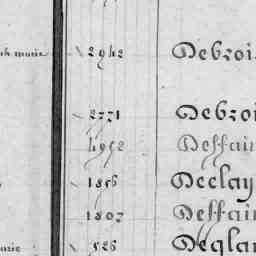 marie 2942 Debroi
2771 Debroi
4952 Deffai
1856 Declay
1807 Deffai
marie 526 Deglar